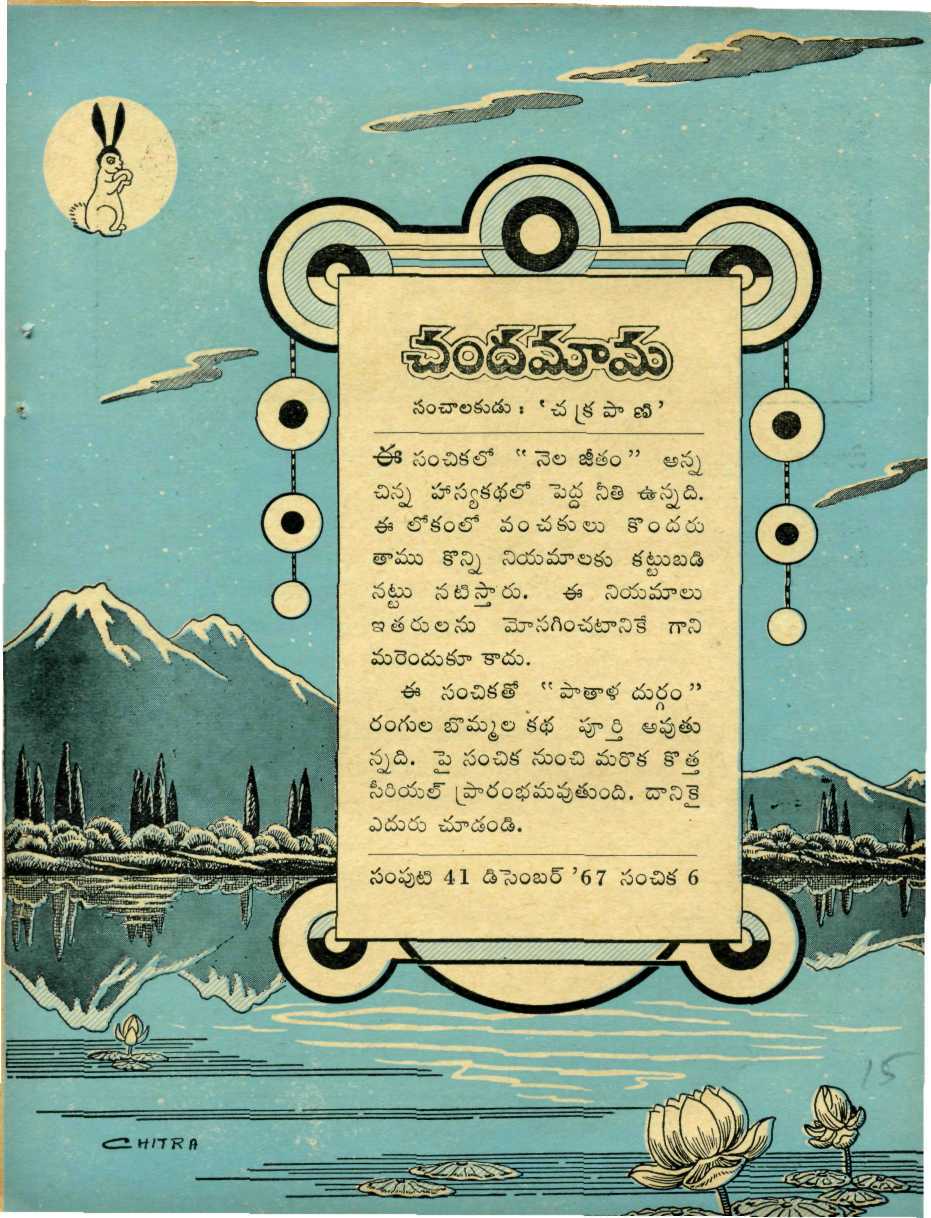 చందమామ
సంచాలకుడు : ‘చక్రపాణి’
ఈ సంచికలో “నెల జీతం” అన్న
చిన్న హాస్యకథలో పెద్ద నీతి ఉన్నది.
ఈ లోకంలో వంచకులు కొందరు
తాము కొన్ని నియమాలకు కట్టుబడి
నట్టు నటిస్తారు. ఈ నియమాలు
ఇతరులను మోసగించటానికే గాని
మరెందుకూ కాదు.
ఈ సంచికతో “పాతాళ దుర్గం”
రంగుల బొమ్మల కథ పూర్తి అవుతు
న్నది. పై సంచిక నుంచి మరొక కొత్త
సీరియల్ ప్రారంభమవుతుంది. దానికై
ఎదురు చూడండి.
సంపుటి 41 డిసెంబర్ ’67 సంచిక 6
15
CHITRA